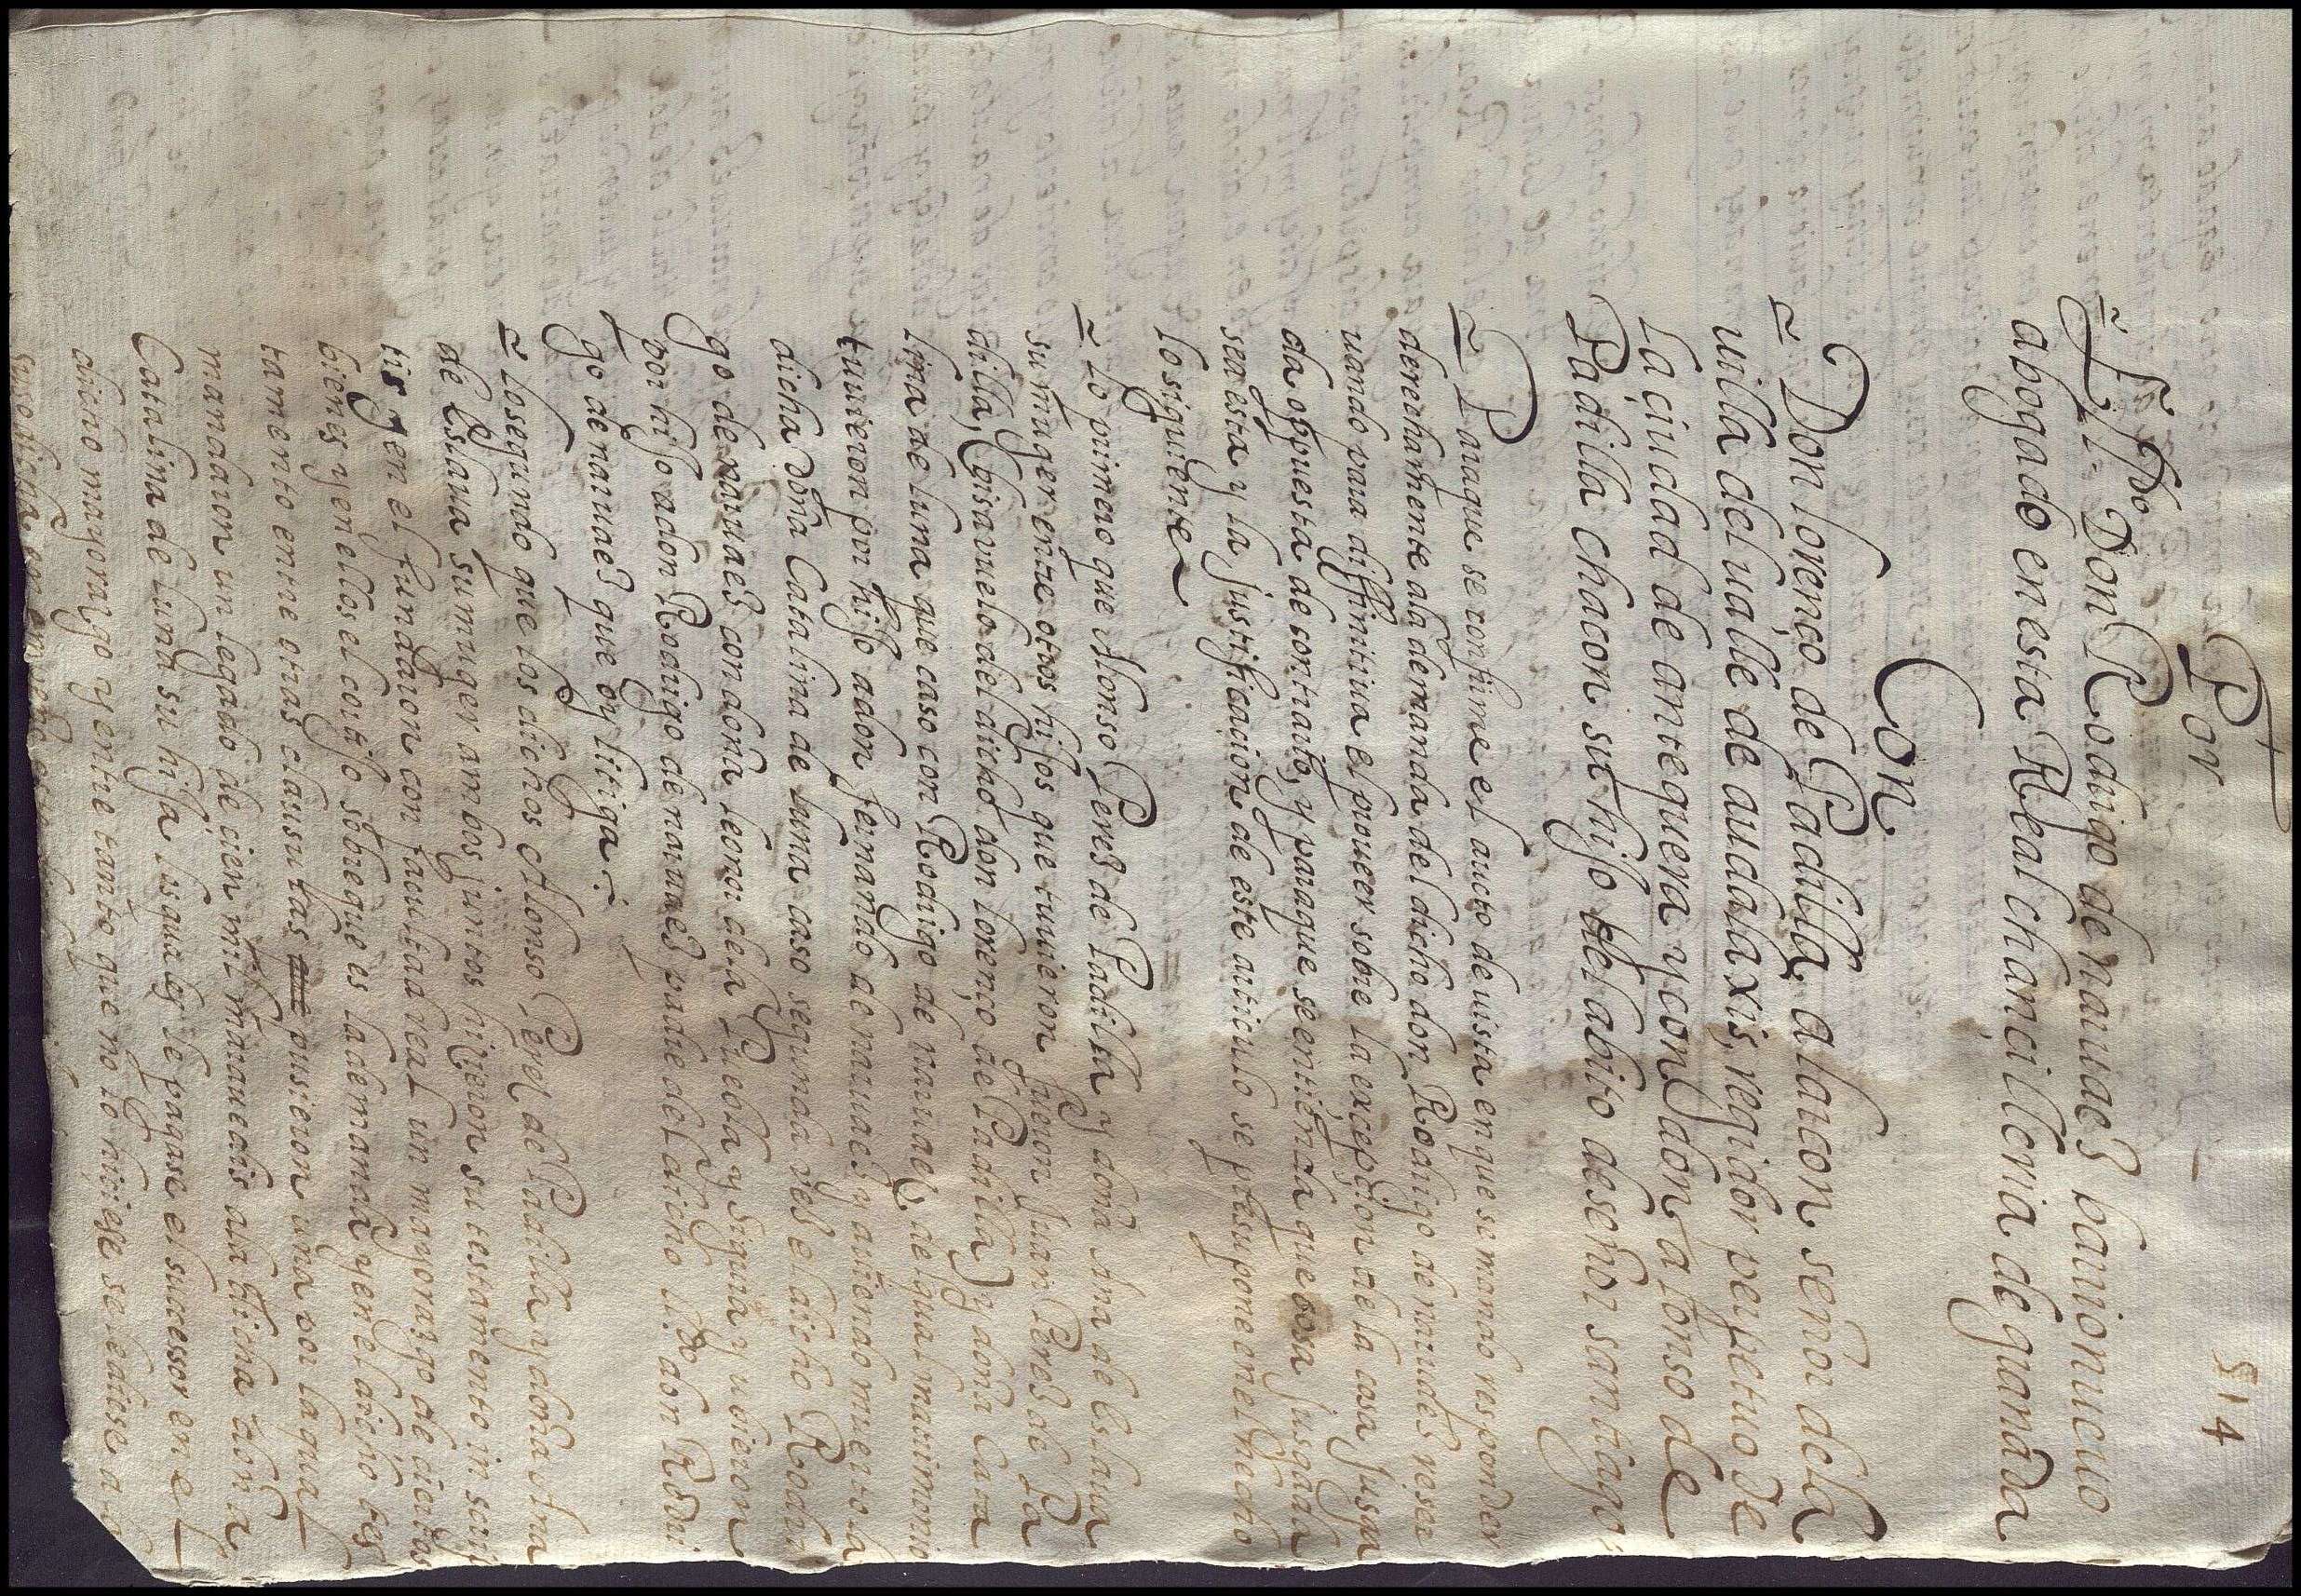 514
Por
~ El Ldo Don Rodrigo de naruaeS barrionueuo
abogado en esta Real chançilleria de granada
Con
~ Don lorenço de Padilla alarcon señor dela
uilla del ualle de audalaxis, regidor perpetuo de
la çiudad de antequera y con don alonso de
Padilla chacon su hijo del abito de señor santiago.
~ Para que se confirme el aucto de uista en que se mando responder
derechamente ala demanda del dicho don Rodrigo de naruaes reser
uando para diffinitiua el proueer sobre la excepçion de la cosa Jusga
da oppuesta de contrario, y para que se entienda que cosa Jusgada
sea esta y la Justificaçion de este articulo se presupone en el hecho
lo siguiente
~ lo primero que Alonso Peres de Padilla y doña Ana de Eslaua
su muger entre otros hijos que tuuieron fueron Juan Peres de Pa
dilla, (bisauuelo del dicho don lorenço de Padilla) y doña Cata
lina de luna que caso con Rodrigo de naruaes, del qual matrimonio
tuuieron por hijo a don fernando de naruaes y auiendo muerto la
dicha doña Catalina de luna caso segunda ves el dicho Rodri
go de naruaeS con doña leonor dela Puebla y Sigura y ubieron
por hijo a don Rodrigo de naruaes padre del dicho ldo don Rodri
go de naruaeS que oy litiga.
~ lo segundo que los dichos Alonso Peres de Padilla y doña Ana
de Eslaua su muger ambos juntos hizieron su testamento in scrip
tis y en el fundaron con facultad real un mayorazgo de ciertos
bienes y en ellos el cortijo sobre que es la demanda y en el dicho tes
tamento entre otras clausulas pusieron una por la qual
mandaron un legado de cien mil marauedis ala dicha doña
Catalina de luna su hija los quales le pagase el successor en el
dicho mayorazgo y entre tanto que no lo hiziese se le diese a la